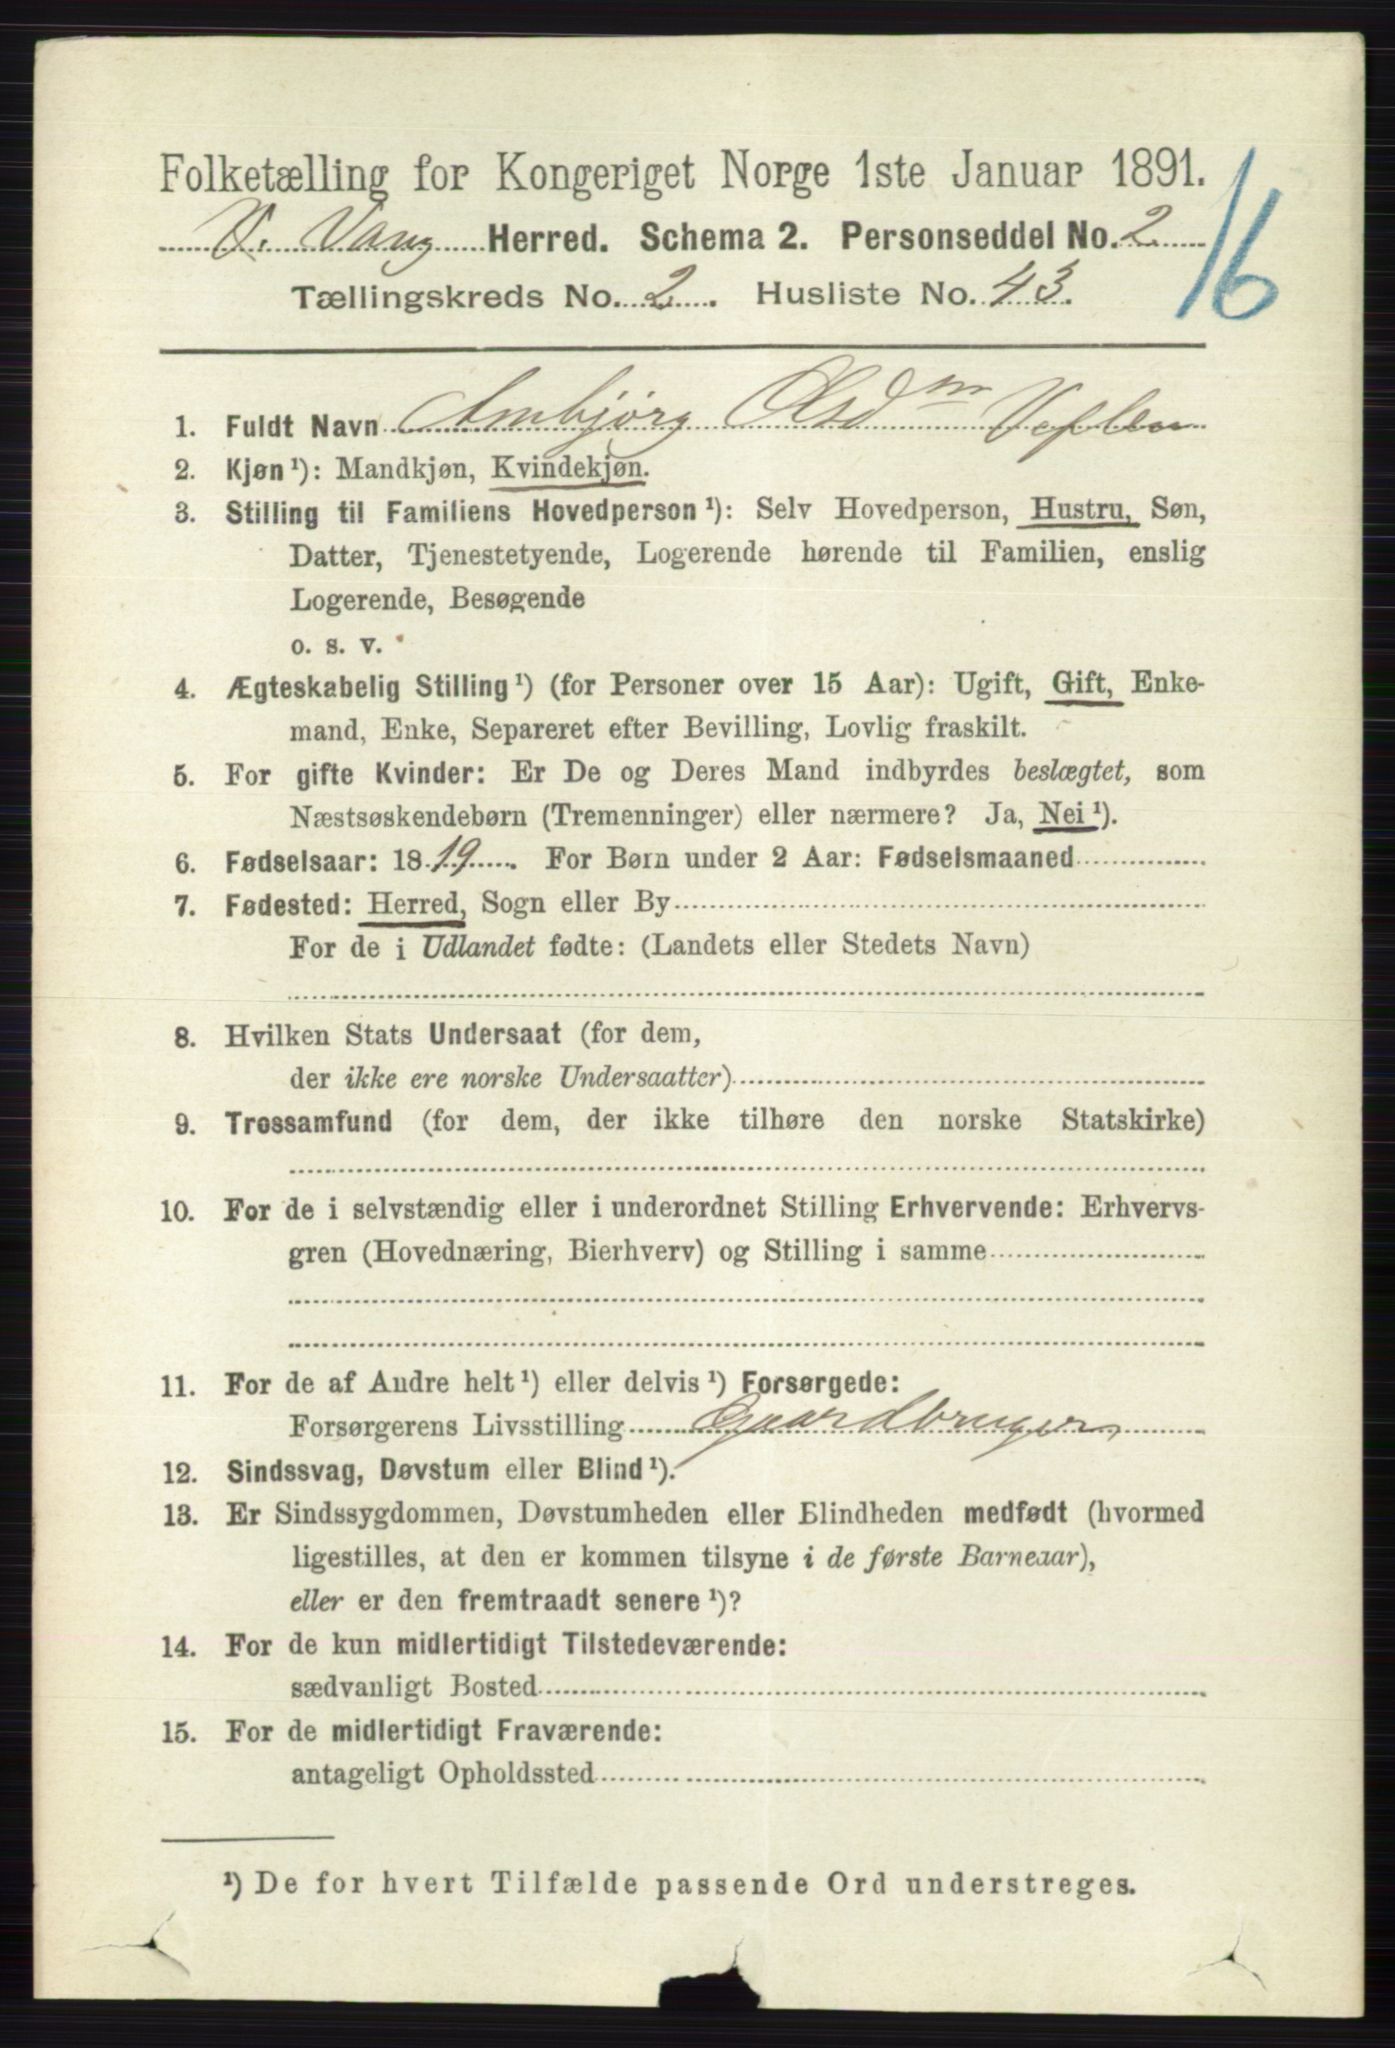 Folketælling for Kongeriget Norge 1ste Januar 1891.
16
V. Vang Herred. Schema 2. Personseddel No. 2
Tællingskreds No. 2. Husliste No. 43.
1. Fuldt Navn Ambjørg Olsdr
2. Kjøn ¹): Mandkjøn, Kvindekjøn.
3. Stilling til Familiens Hovedperson ¹): Selv Hovedperson, Hustru, Søn,
Datter, Tjenestetyende, Logerende hørende til Familien, enslig
Logerende, Besøgende
o. s. v.
4. Ægteskabelig Stilling ¹) (for Personer over 15 Aar): Ugift, Gift, Enke-
mand, Enke, Separeret efter Bevilling, Lovlig fraskilt.
5. For gifte Kvinder: Er De og Deres Mand indbyrdes beslægtet, som
Næstsøskendebørn (Tremenninger) eller nærmere? Ja, Nei ¹).
6. Fødselsaar: 1819. For Børn under 2 Aar: Fødselsmaaned
7. Fødested: Herred, Sogn eller By
For de i Udlandet fødte: (Landets eller Stedets Navn)
8. Hvilken Stats Undersaat (for dem,
der ikke ere norske Undersaatter)
9. Trossamfund (for dem, der ikke tilhøre den norske Statskirke)
10. For de i selvstændig eller i underordnet Stilling Erhvervende: Erhvervs-
gren (Hovednæring, Bierhverv) og Stilling i samme
11. For de af Andre helt ¹) eller delvis ¹) Forsørgede:
Forsørgerens Livsstilling Gaardbruger
12. Sindssvag, Døvstum eller Blind ¹).
13. Er Sindssygdommen, Døvstumheden eller Blindheden medfødt (hvormed
ligestilles, at den er kommen tilsyne i de første Barneaar),
eller er den fremtraadt senere ¹)?
14. For de kun midlertidigt Tilstedeværende:
sædvanligt Bosted
15. For de midlertidigt Fraværende:
antageligt Opholdssted
¹) De for hvert Tilfælde passende Ord understreges.